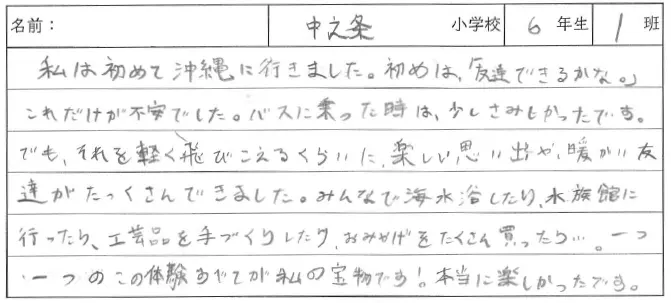 名前： 中之条 小学校 6 年生 1 班
私は初めて沖縄に行きました。初めは、「友達できるかな。」
これだけが不安でした。バスに乗った時は、少しさみしかったです。
でも、それを軽く飛びこえるくらいに、楽しい思い出や、暖かい友
達がたっくさんできました。みんなで海水浴したり、水族館に
行ったり、工芸品を手づくりしたり、おみやげをたくさん買ったり…。一つ
一つのこの体験すべてが私の宝物です！本当に楽しかったです。